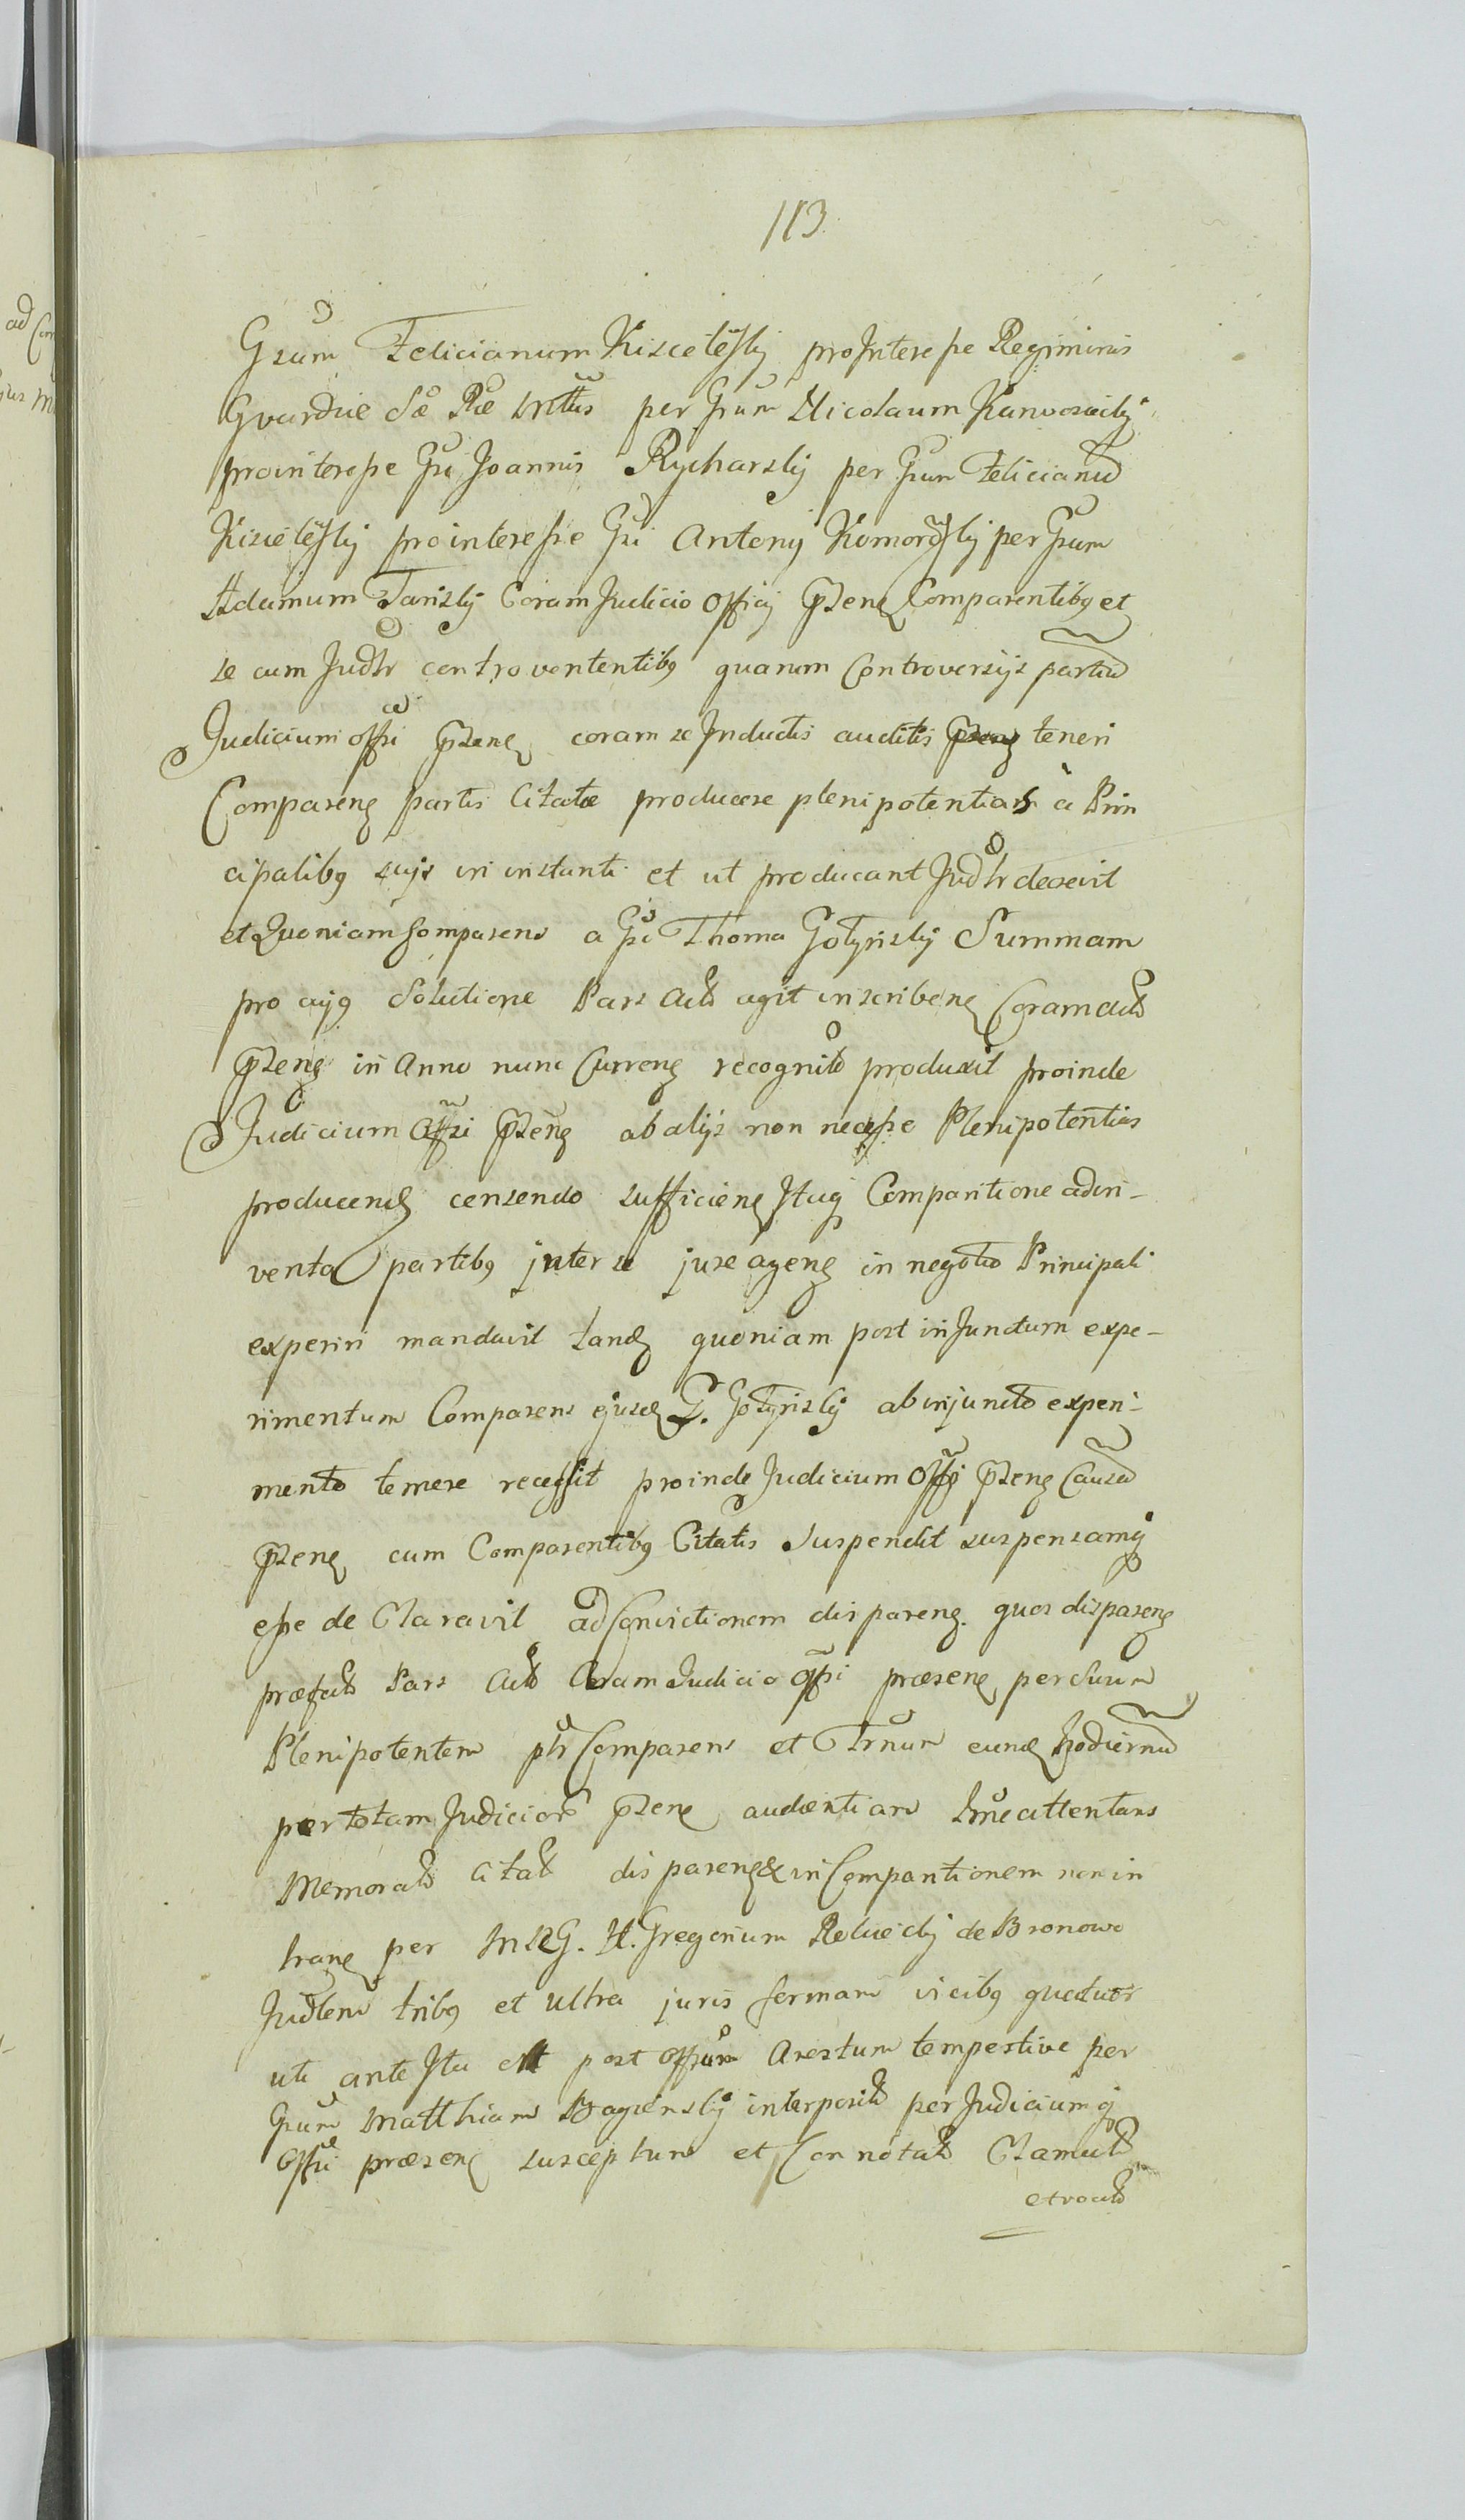 113
Gsum Felicianum Kisielesky pro Interesse Regiminis
Gvardiæ Sæ Ræ Mttis per Gsum Nicolaum Kanvowsky
pro interesse Gsi Joannis Rycharsky per Gsum Felicianu
Kisielesky pro interesse Gsi Antonij Komorosky per Gsum
Adamum Tarisky Coram Judicio Officij Psens Comparentibg et
se cum Judlr controvententibg quarum Controversijs partiu
Judicium Offsi Psens coram se Inductis auditis teneri
Comparens partis Citatæ producere plenipotentias à Prin
cipalibg suijs in instanti et ut producant Judlr decrevit
et Quoniam Comparens a Gso Thoma Gotyrisky Summam
pro cujg Solutione Pars Acto agit inscribens Coram acto
Psens in Anno nunc Currens recognito produxit proinde
Judicium Offsi Psens ab alijs non necesse Plenipotentias
producend censendo sufficiens Itaq Comparitione adin-
venta partibg inter se jure agens in negotio Principali
experiri mandavit tand quoniam post in Junctum expe-
rimentum Comparens ejusd G. Gotyrisky ab injuncto experi-
mento temere recessit proinde Judicium Offsi Psens Causa
Psens cum Comparentibg Citatis Suspendit suspensamq
esse de Claravit ad Convictionem disparens. quos disparens
præfato Pars Acto Coram Judicio Offsi præsens per Suum
Plenipotentem plr Comparens et Trnum eund hodiernu
per totam Judiciore Psens audientiam lme attentans
Memorato Citato disparens & in Comparitionem non in
trans per MRG. H. Gregorium Rediecky de Bronowo
Judlem tribg et ultra juris formam vicibg quatuor
uti ante Ita est post Offsum Arestum tempestive per
Gsum Matthiam Bagiensky interposito per Judiciumq
Offsi præsens susceptum et Connotato Clamato
et vocato